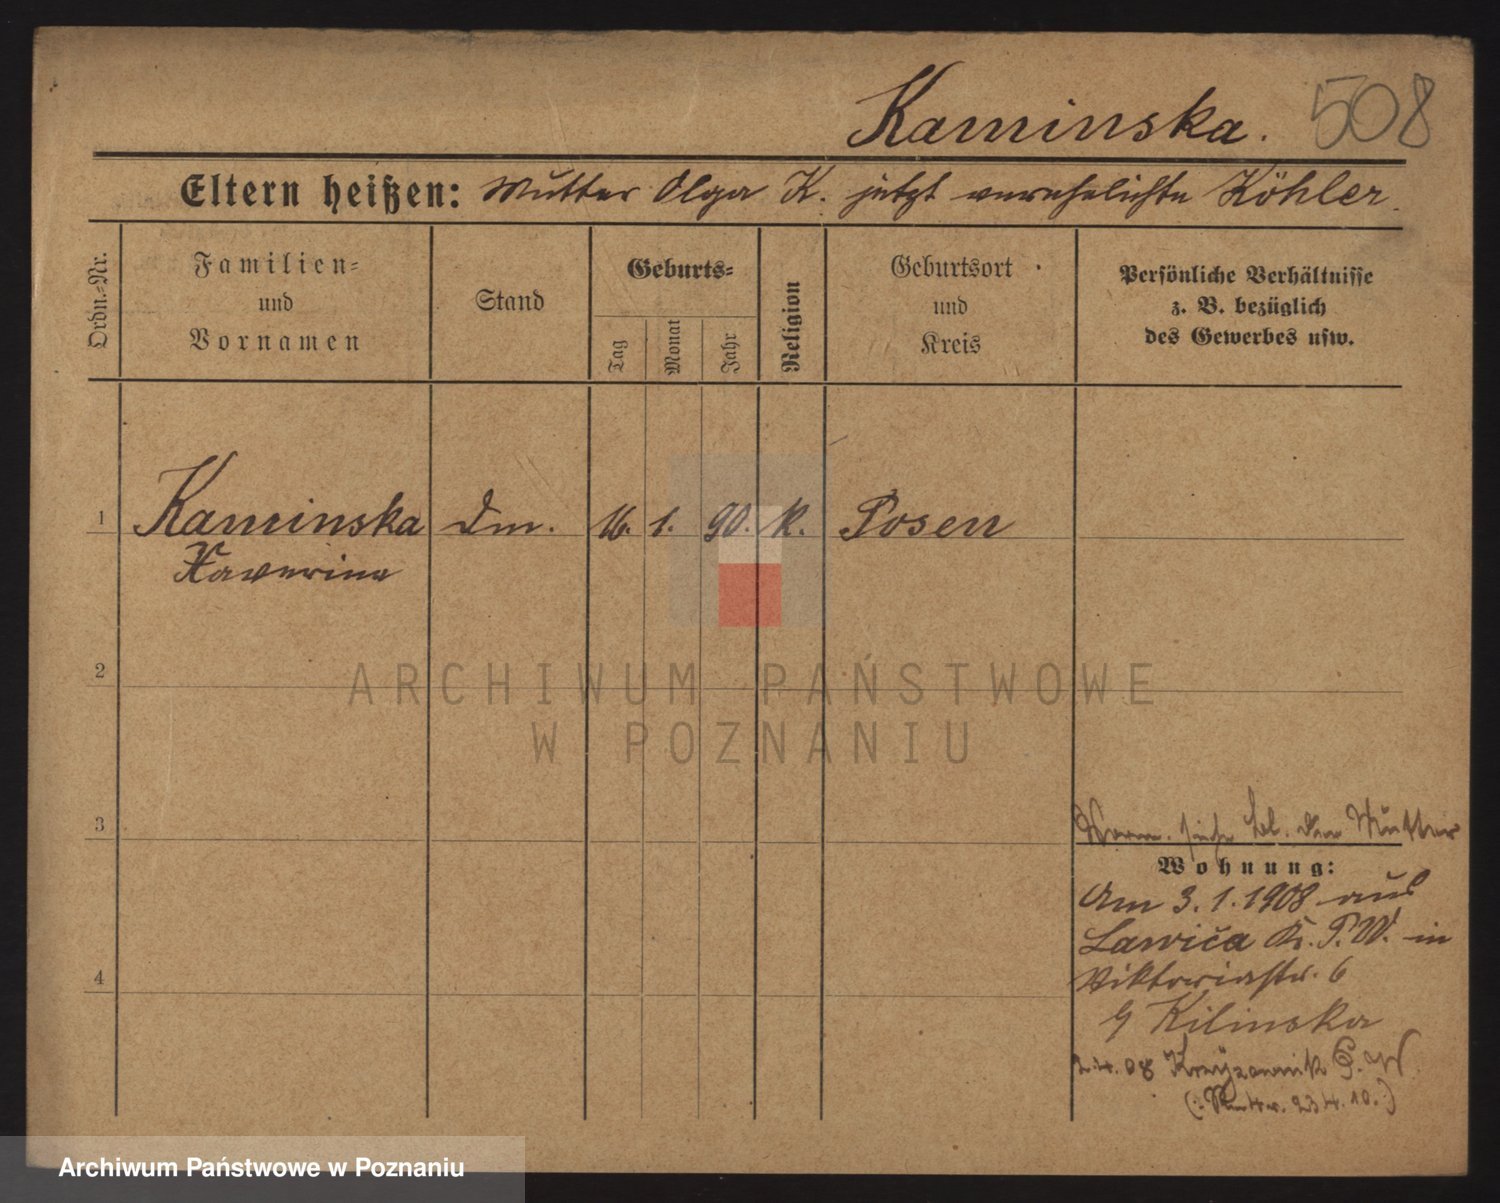 Kaminska. 508
Eltern heißen: Mutter Olga K. jetzt verehelichte Köhler.
Ordn.-Nr.
Familien-
und
Vornamen
Stand
Geburts-
Tag
Monat
Jahr
Religion
Geburtsort
und
Kreis
Persönliche Verhältnisse
z. B. bezüglich
des Gewerbes usw.
1 Kaminska Dm. 16. 1. 90. k. Posen
Xaverina
2
ARCHIWUM PAŃSTWOWE
W POZNANIU
3
siehe bl. der Mutter
Wohnung:
Am 3.1.1908 aus
Lawica Kr. P.W. in
Viktoriastr. 6
Kilinska
2.4.08 P. W
23 4. 10.
4
Archiwum Państwowe w Poznaniu